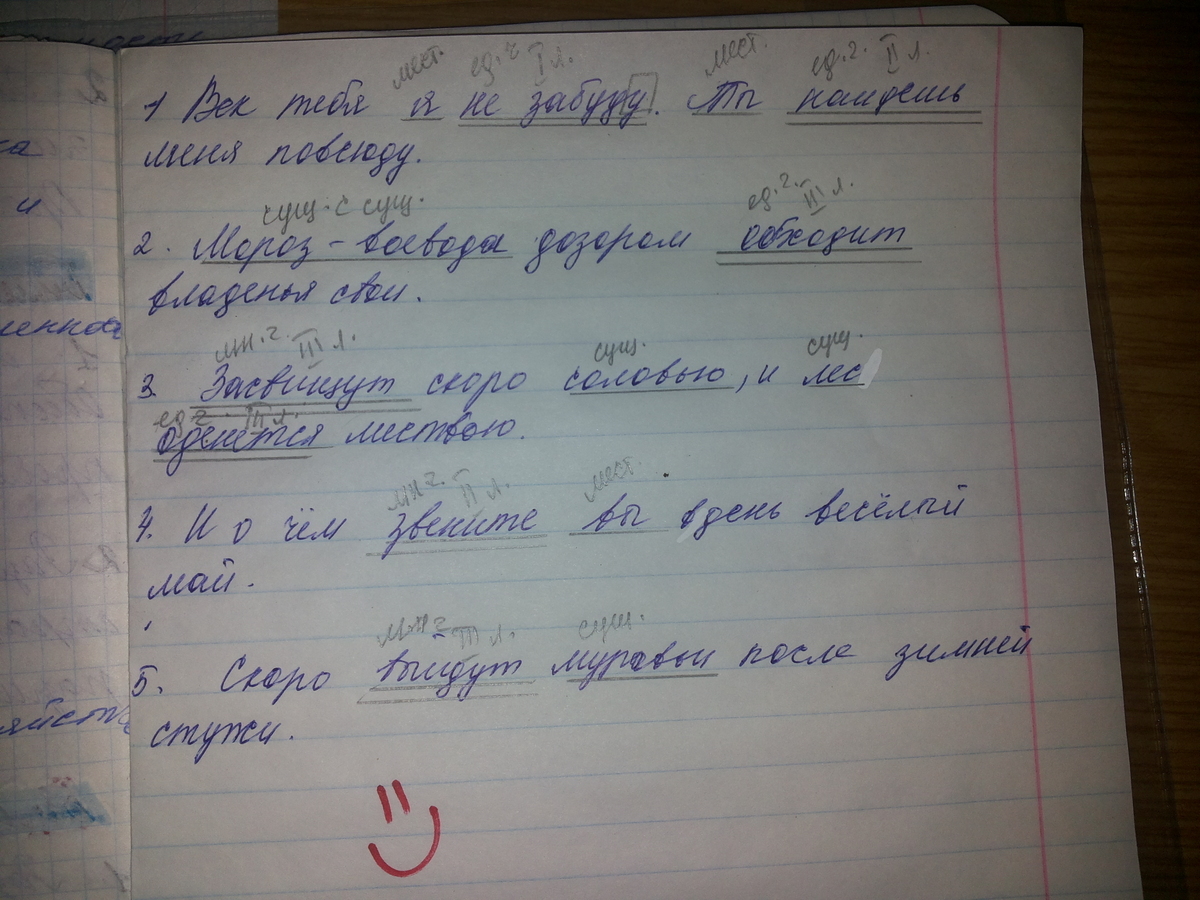 мест. ед. ч. I л. мест. ед. ч. II л.
1 Век тебя я не забуду. Ты найдешь
меня повсюду.
сущ. с сущ. ед. ч. III л.
2. Мороз - воевода дозором обходит
владенья свои.
мн. ч. III л. сущ. сущ.
3. Засвищут скоро соловью, и лес
ед ч. III л.
оденется листвою.
мн ч. II л. мест.
4. И о чём звените вы в день весёлый
май.
мн ч III л. сущ.
5. Скоро выйдут муравьи после зимней
стужи.
ка
и
яйств